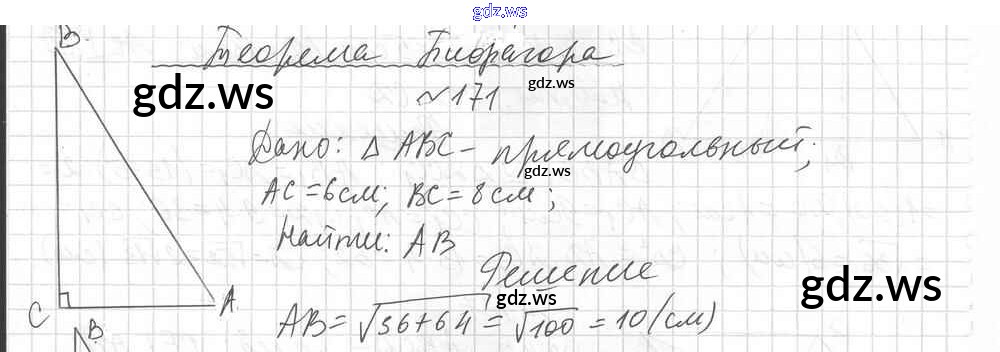 gdz.ws
B
Теорема Пифагора
gdz.ws
gdz.ws
№171
Дано: Δ ABC - прямоугольный;
gdz.ws
AC = 6 см; BC = 8 см;
Найти: AB
Решение
gdz.ws
gdz.ws
C
A
AB = √36+64 = √100 = 10 (см)
B